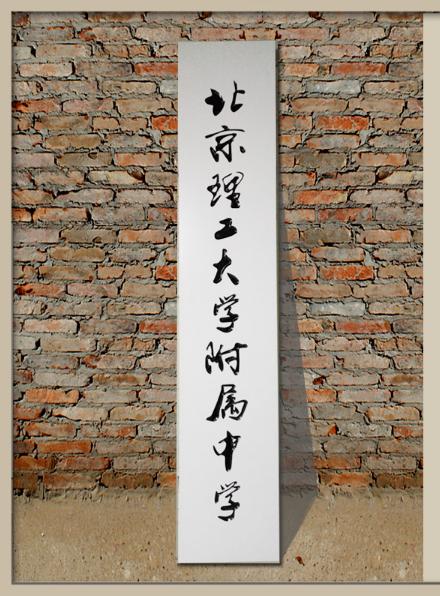 北京理工大学附属中学